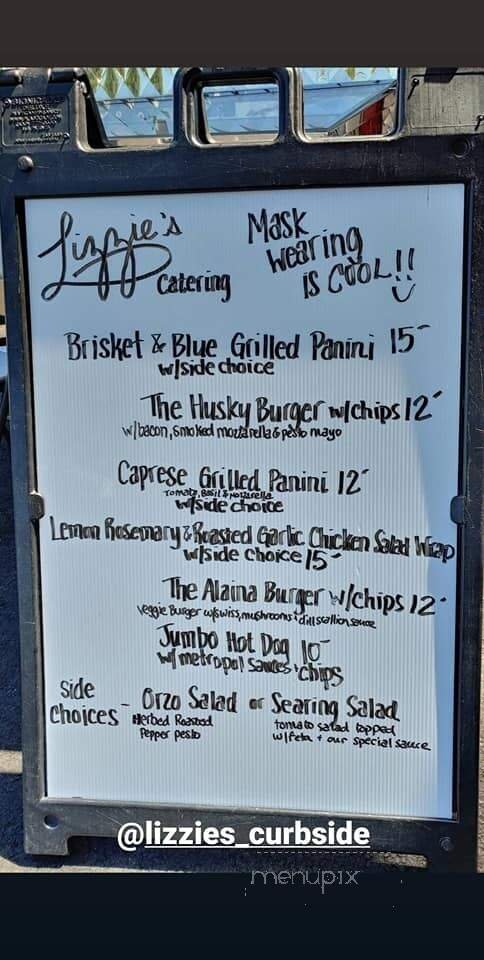 Lizzie's
Catering
Mask
wearing
is COOL!!
Brisket & Blue Grilled Panini 15-
w/side choice
The Husky Burger w/chips 12-
w/bacon, smoked mozzarella & pesto mayo
Caprese Grilled Panini 12-
Tomato, Basil & Mozzarella
w/side choice
Lemon Rosemary & Roasted Garlic Chicken Salad Wrap
w/side choice 15-
The Alaina Burger w/chips 12-
veggie Burger w/swiss, mushrooms & dill scallion sauce
Jumbo Hot Dog 10-
w/ metropol sauces & chips
Side
Choices - Orzo Salad or Searing Salad
Herbed Roasted
Pepper pesto
tomato salad topped
w/feta + our special sauce
@lizzies_curbside
menupix